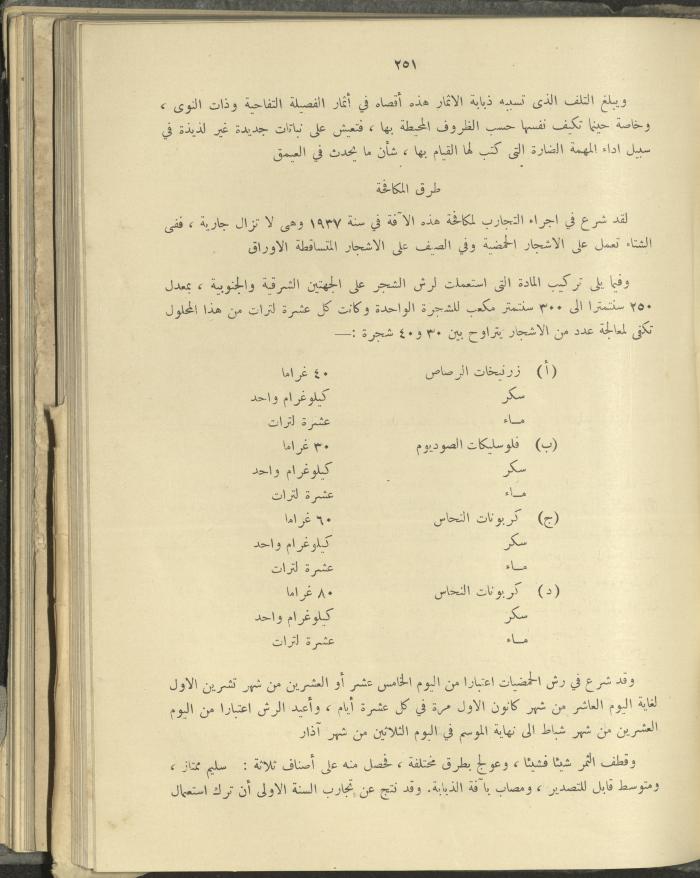 ٢٥١
ويبلغ التلف الذى تسببه ذبابة الاثمار هذه أقصاه في أثمار الفصيلة التفاحية وذات النوى ،
وخاصة حينما تكيف نفسها حسب الظروف المحيطة بها ، فتعيش على نباتات جديدة غير لذيذة في
سبيل اداء المهمة الضارة التى كتب لها القيام بها ، شأن ما يحدث في العيمق
طرق المكافحة
لقد شرع في اجراء التجارب لمكافحة هذه الآفة في سنة ١٩٣٧ وهى لا تزال جارية ، ففى
الشتاء تعمل على الاشجار الحمضية وفي الصيف على الاشجار المتساقطة الاوراق
وفيما يلى تركيب المادة التى استعملت لرش الشجر على الجهتين الشرقية والجنوبية ، بمعدل
٢٥٠ سنتمترا الى ٣٠٠ سنتمتر مكعب للشجرة الواحدة وكانت كل عشرة لترات من هذا المحلول
تكفى لمعالجة عدد من الاشجار يتراوح بين ٣٠ و٤٠ شجرة :—
(أ) زرنيخات الرصاص ٤٠ غراما
سكر كيلوغرام واحد
مـاء عشرة لترات
(ب) فلوسليكات الصوديوم ٣٠ غراما
سكر كيلوغرام واحد
مـاء عشرة لترات
(ج) كربونات النحاس ٦٠ غراما
سكر كيلوغرام واحد
مـاء عشرة لترات
(د) كربونات النحاس ٨٠ غراما
سكر كيلوغرام واحد
مـاء عشرة لترات
وقد شرع في رش الحمضيات اعتبارا من اليوم الخامس عشر أو العشرين من شهر تشرين الاول
لغاية اليوم العاشر من شهر كانون الاول مرة في كل عشرة أيام ، وأعيد الرش اعتبارا من اليوم
العشرين من شهر شباط الى نهاية الموسم في اليوم الثلاثين من شهر آذار
وقطف الثمر شيئا فشيئا ، وعولج بطرق مختلفة ، فحصل منه على أصناف ثلاثة : سليم ممتاز ،
ومتوسط قابل للتصدير ، ومصاب بآفة الذبابة. وقد نتج عن تجارب السنة الاولى أن ترك استعمال